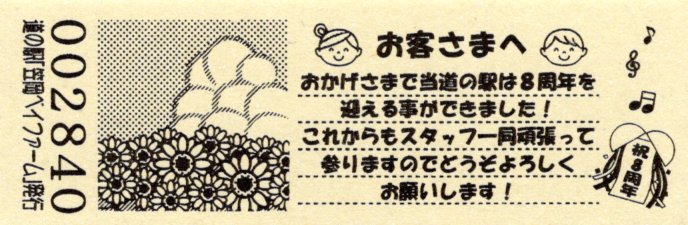 002840
道の駅 笠岡ベイファーム発行
お客さまへ
おかげさまで当道の駅は8周年を
迎える事ができました!
これからもスタッフ一同頑張って
参りますのでどうぞよろしく
お願いします!
祝8周年